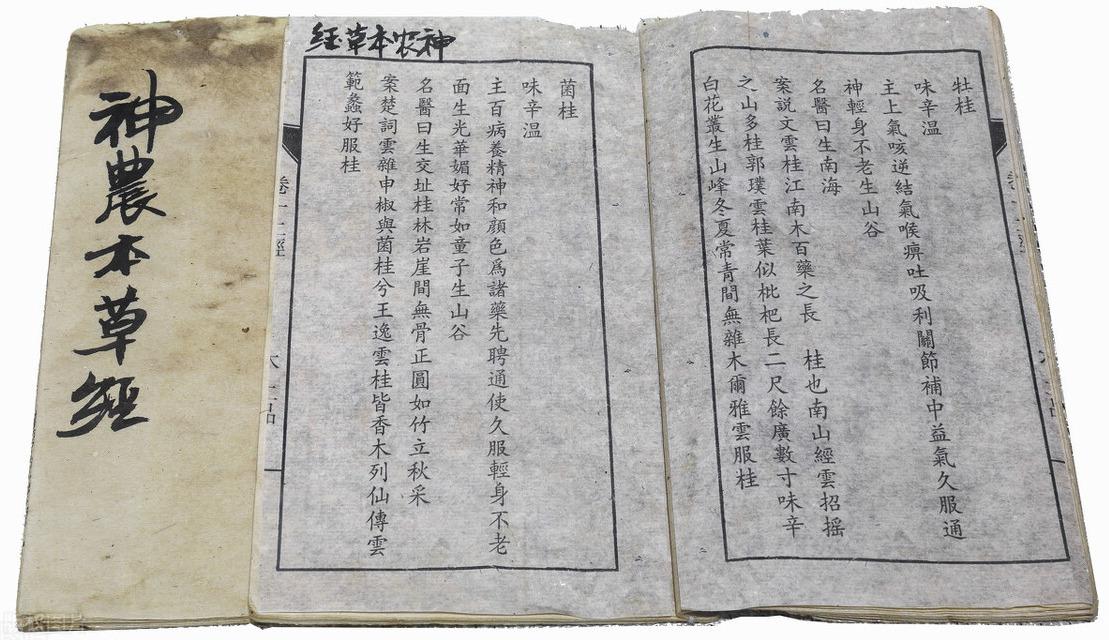 牡桂
味辛溫
主上氣咳逆結氣喉痹吐吸利關節補中益氣久服通
神輕身不老生山谷
名醫曰生南海
案説文雲桂江南木百藥之長 桂也南山經雲招摇
之山多桂郭璞雲桂葉似枇杷長二尺餘廣數寸味辛
白花叢生山峰冬夏常青間無雜木爾雅雲服桂
神农本草经
菌桂
味辛温
主百病養精神和顔色爲諸藥先聘通使久服輕身不老
面生光華媚好常如童子生山谷
名醫曰生交址桂林岩崖間無骨正圓如竹立秋采
案楚詞雲雜申椒與菌桂兮王逸雲桂皆香木列仙傳雲
範蠡好服桂
神農本草經